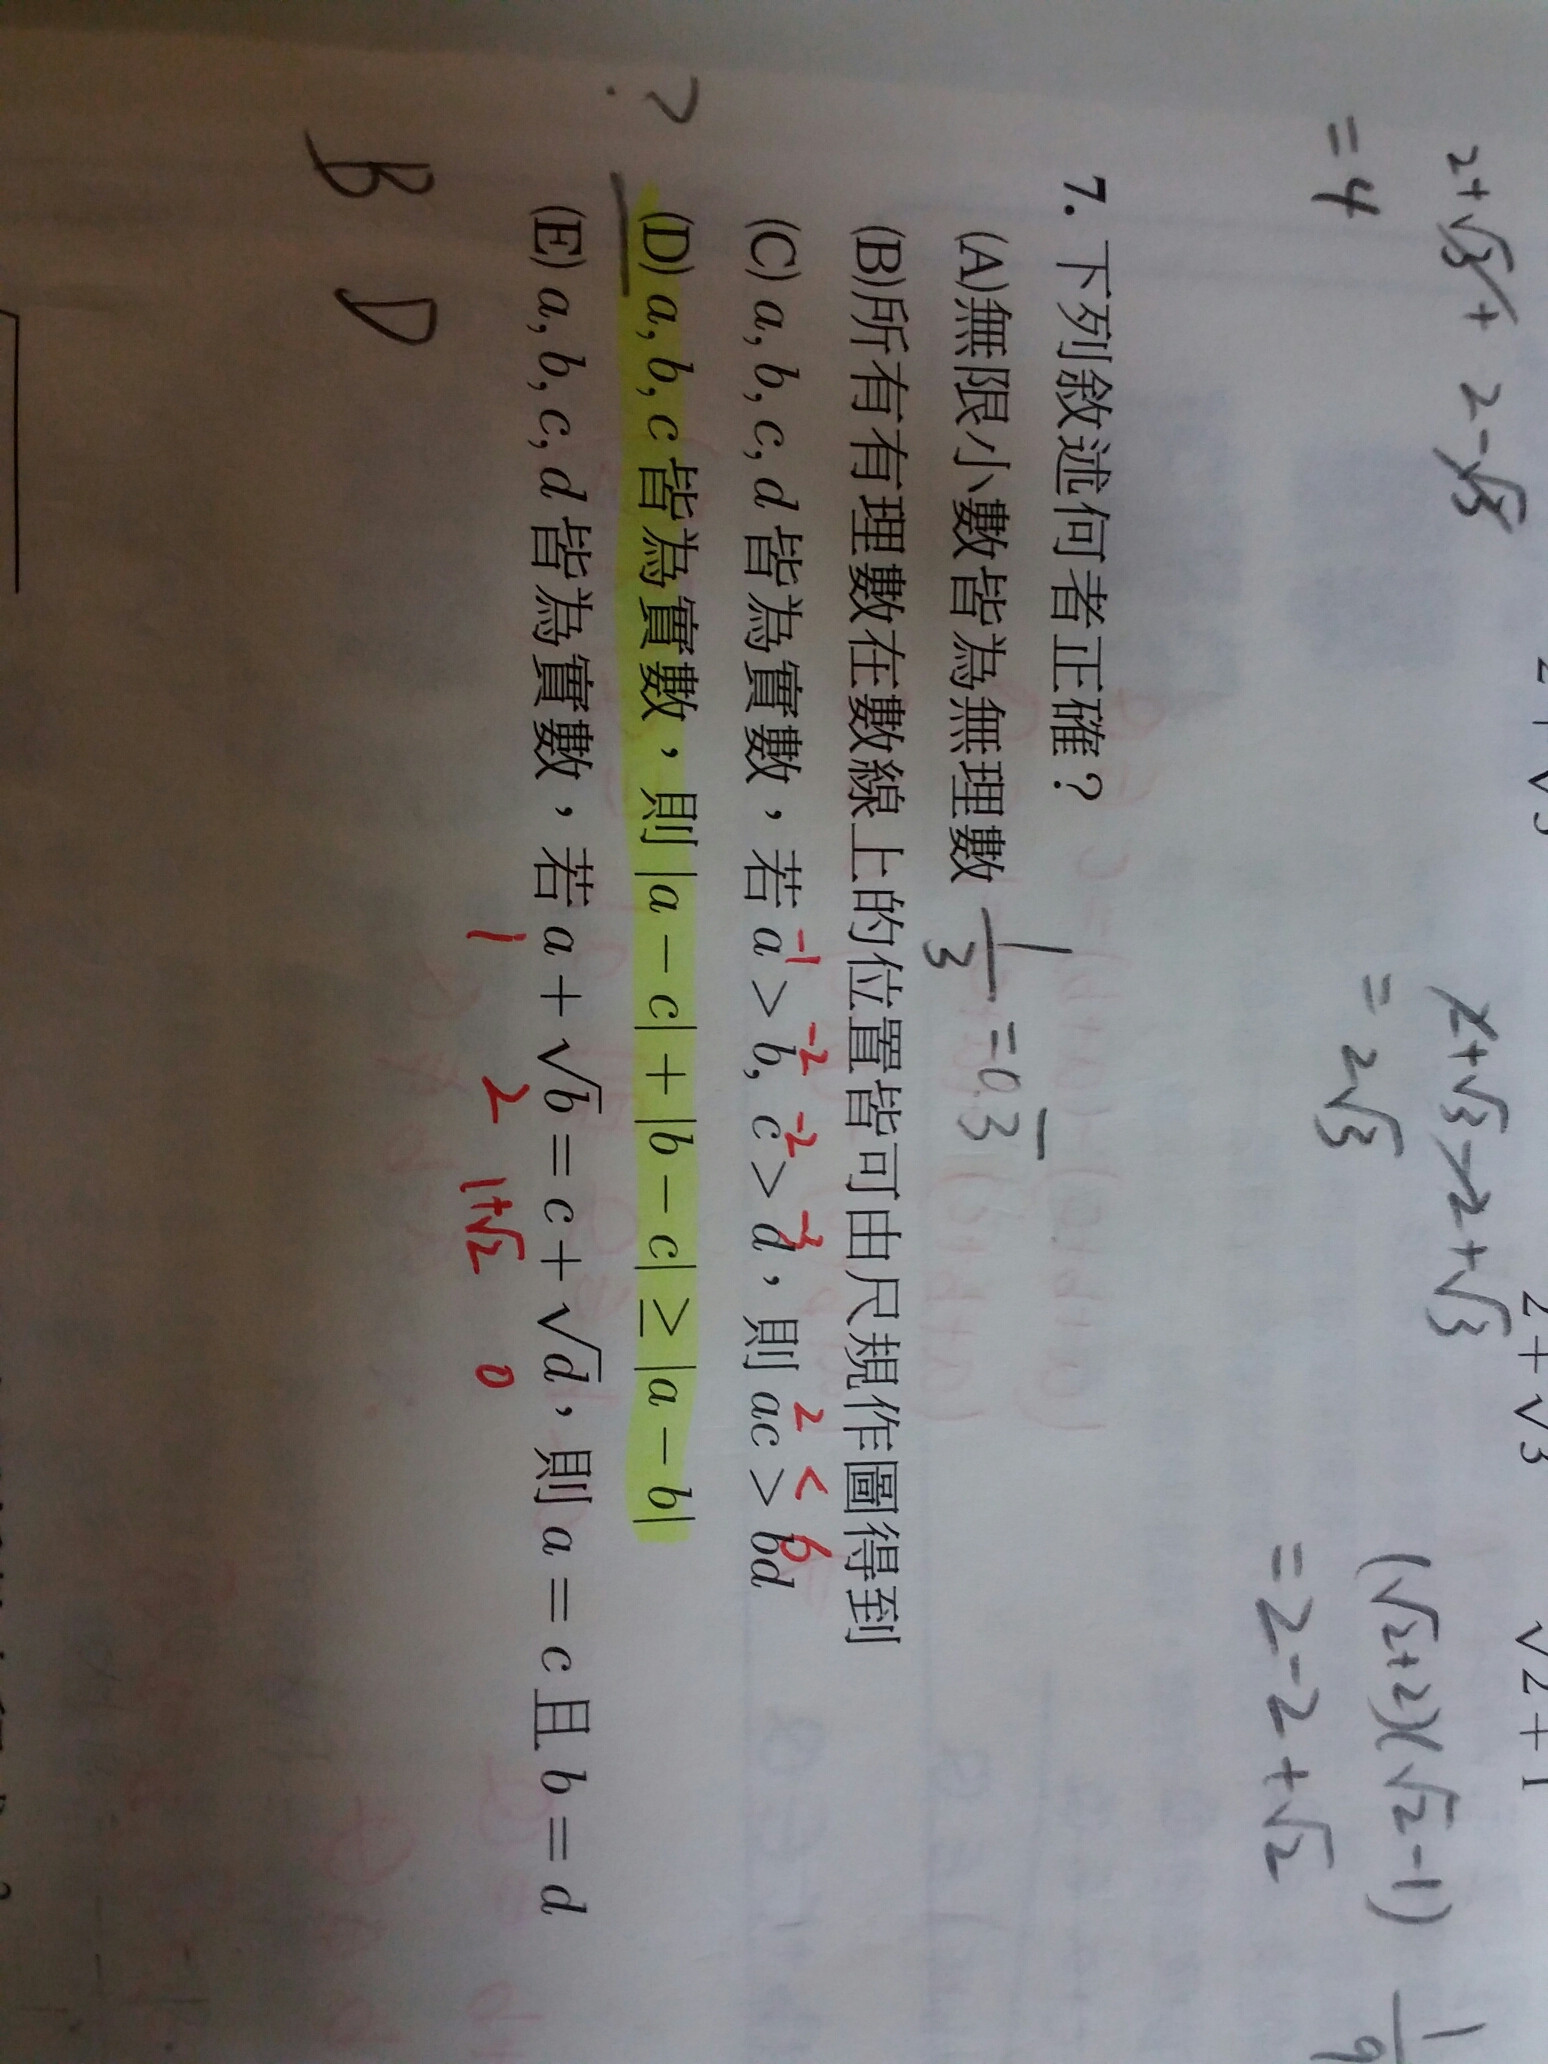 2+√3+2-√3
=4
2+√3-2+√3
=2√3
(√2+2)(√2-1)
=2-2+√2
2+√3
√2+1
1
9
7. 下列敘述何者正確？
(A)無限小數皆為無理數 1/3 = 0.3̅
(B)所有有理數在數線上的位置皆可由尺規作圖得到
-1 -2 -2 -3 2 < 6
(C) a, b, c, d 皆為實數，若 a > b, c > d，則 ac > bd
?
(D) a, b, c 皆為實數，則 |a − c| + |b − c| ≥ |a − b|
(E) a, b, c, d 皆為實數，若 a + √b = c + √d，則 a = c 且 b = d
1 2 1+√2 0
B D